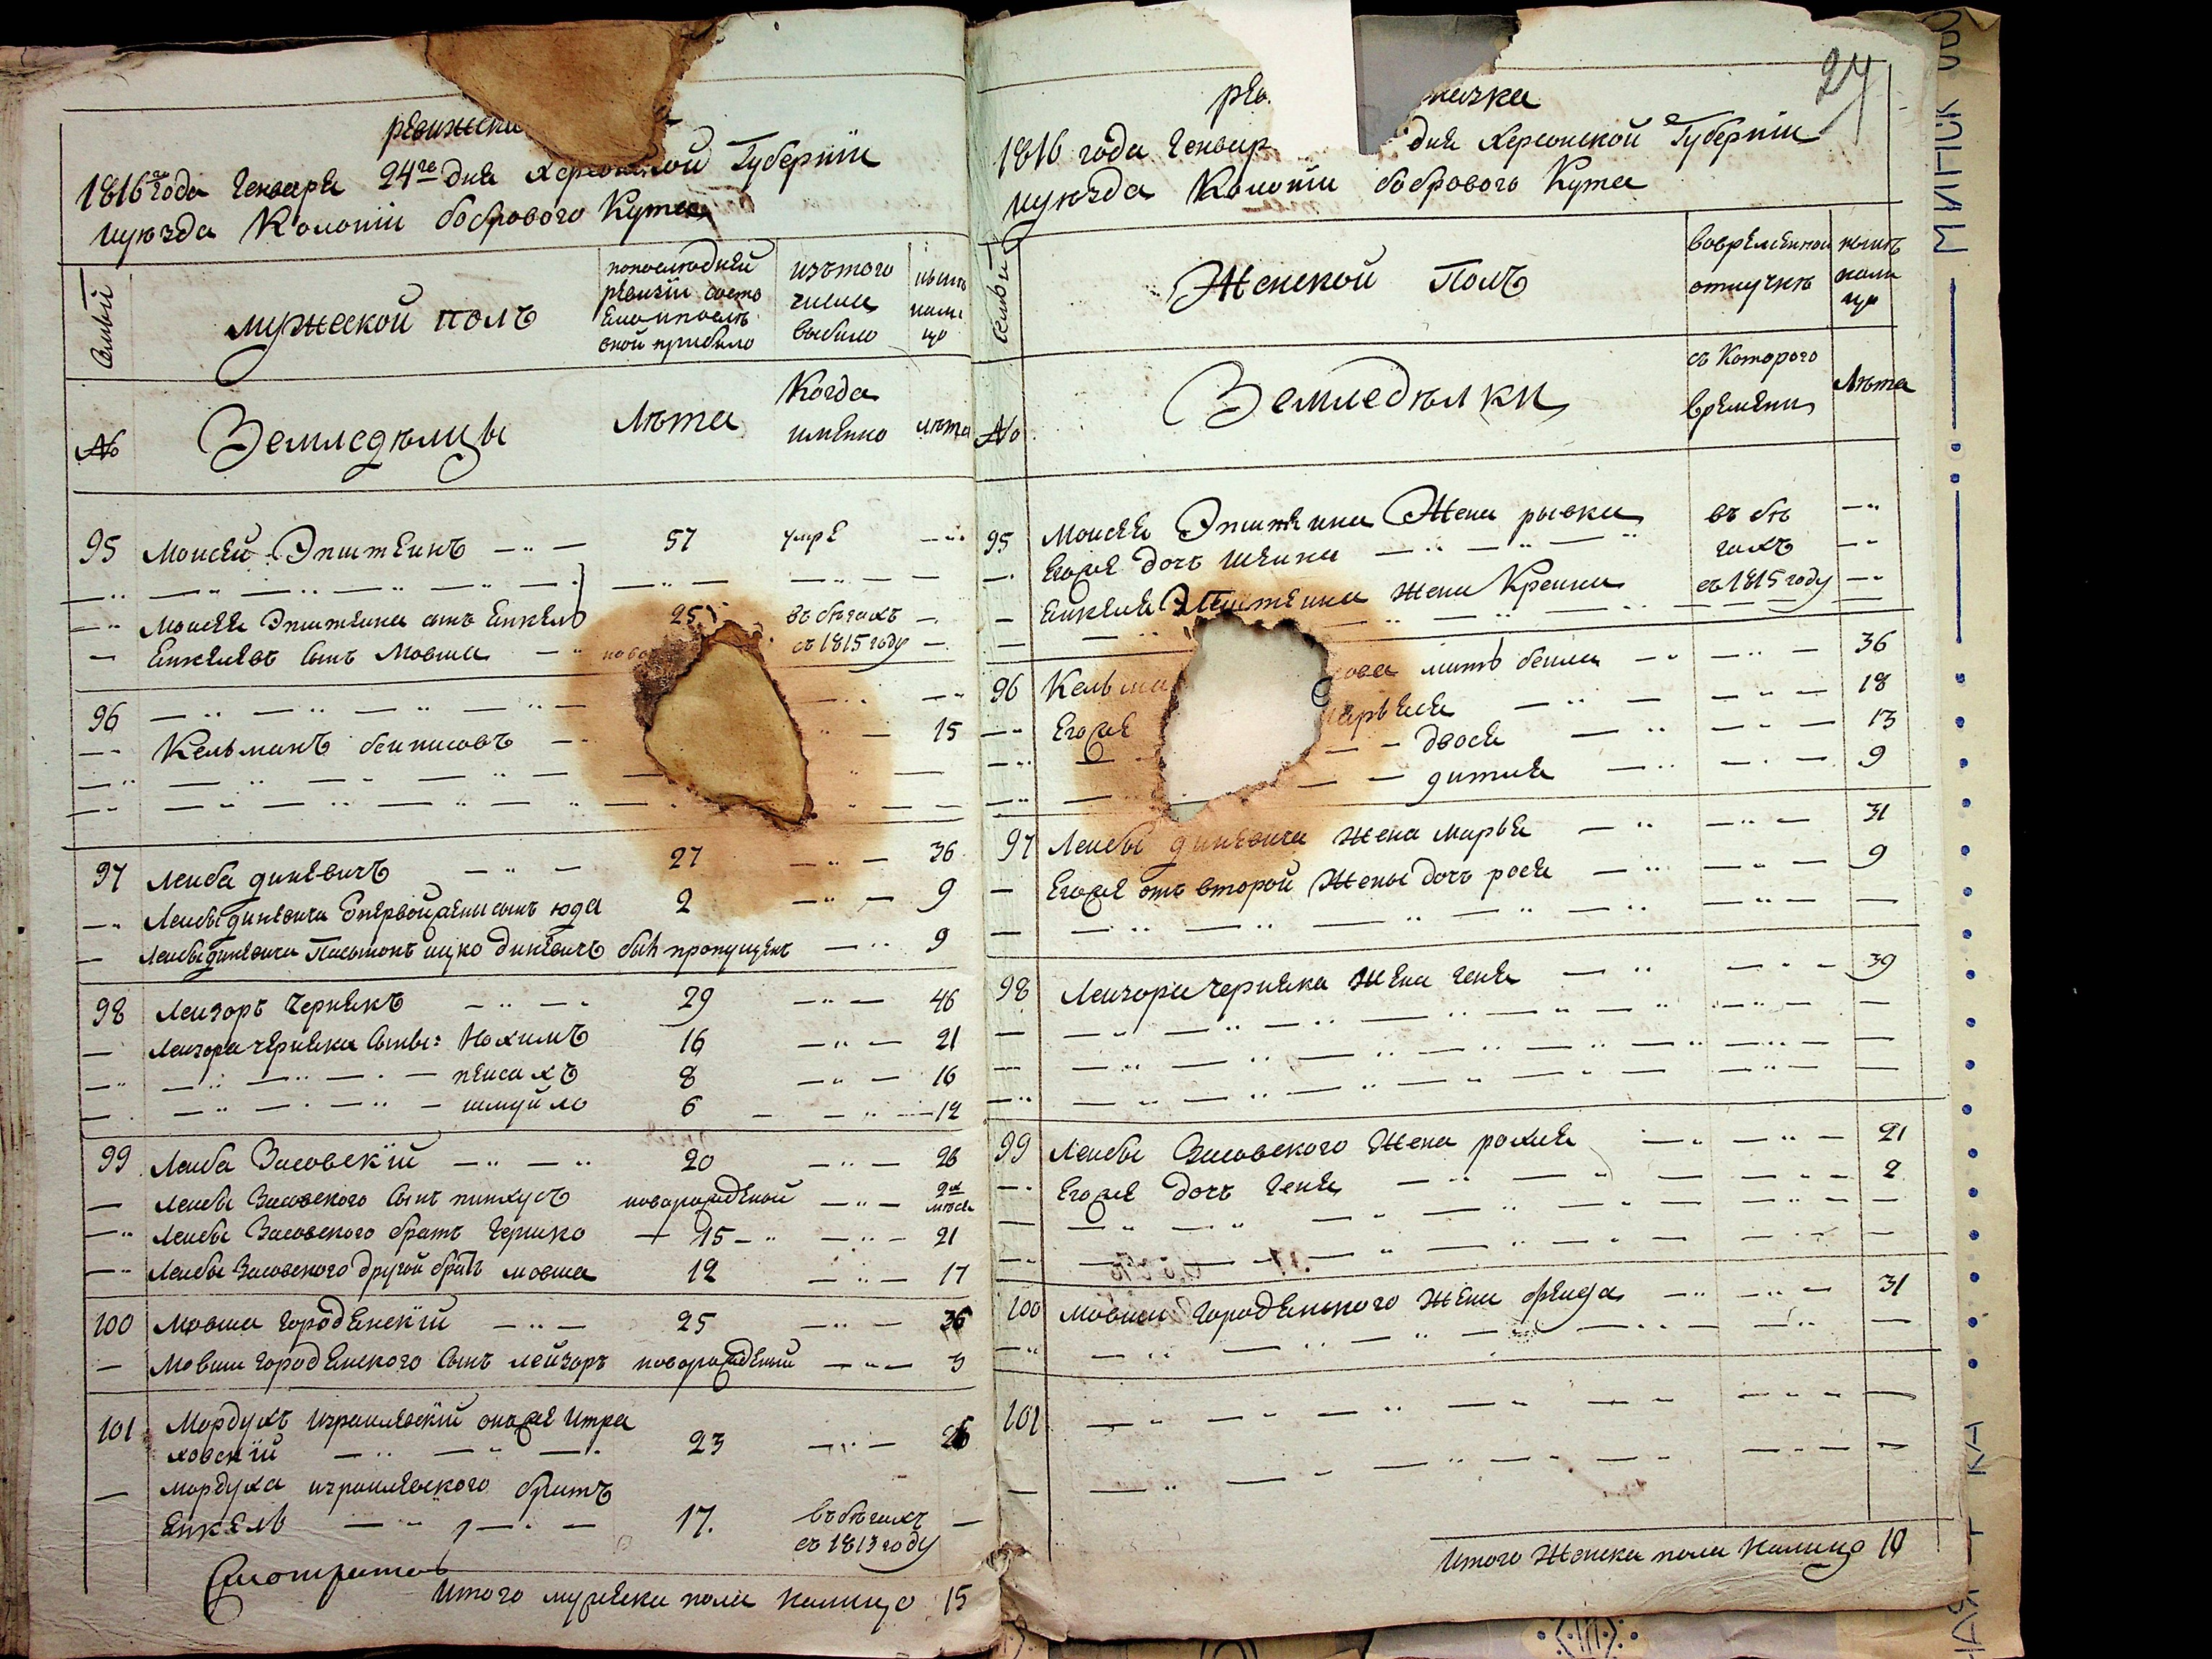 ревижска
1816го года Генваря 24го дня Херсонской Губернїи
и уѣзда Колонїи Бобрового Кута
Семьи
мужеской полъ
по последней ревизіи состояло и после оной прибыло
изъ того числа выбыло
нынѣ на лицо
№
Земледѣлцы
Лѣта
Когда именно
лѣта
95 Моисей Эпштеинъ 57 умре
Моисея Эпштеина сынъ Енкель 25 въ бѣгахъ
Енкелевъ сынъ Мовша с 1815 году
96
Кельманъ бенисовъ 15
97 Леиба диневичъ 27 36
Леибы диневича Спервой жены сынъ юда 2 9
Леибы диневича Пасынокъ ицко диневичъ былъ пропущенъ 9
98 Леизоръ Чернякъ 29 46
Леизора черняка сыны: Нохимъ 16 21
пеисахъ 8 16
шмуйло 6 12
99 Леиба Засовскїй 20 26
Леибы Засовского сынъ пинхусъ новорожденой 2х мѣсяц
Леибы Засовского братъ Гершко 15 21
Леибы Засовского другой братъ мовша 12 17
100 Мовша Городенскїй 25 36
Мовши городенского сынъ лейзоръ новорожденый 3
101 Мордухъ Израилевскїй онже Итра
ховскїй 23 26
мордуха израилевского братъ
Енкель 17. въ бѣгахъ
съ 1813 году
Смотритель
Итого мужеска пола налицо 15
27
рев
1816 года Генвар дня Херсонской Губернїи
и уѣзда Колонїи бобрового Кута
Семьи
Женской Полъ
во временной отлучке
нынѣ на лицо
№
Земледѣлки
съ Которого времени
Лѣта
95 Моисея Эпштеина Жена рывка въ бѣ
Егоже дочъ шеина гахъ
Енкеля Эпштеина жена Креина съ 1815 году
96 Кельма сова мать беила 36
Егоже марьяся 18
двося 13
дитля 9
97 Леибы диневича жена марья 31
Егоже отъ второй жены дочъ рося 9
98 Леизора черняка жена геня 39
99 Леибы Засовского жена рохля 21
Егоже дочъ Геня 2
100 Мовши Городенского жена фреида 31
101
Итого Женска пола налицо 10